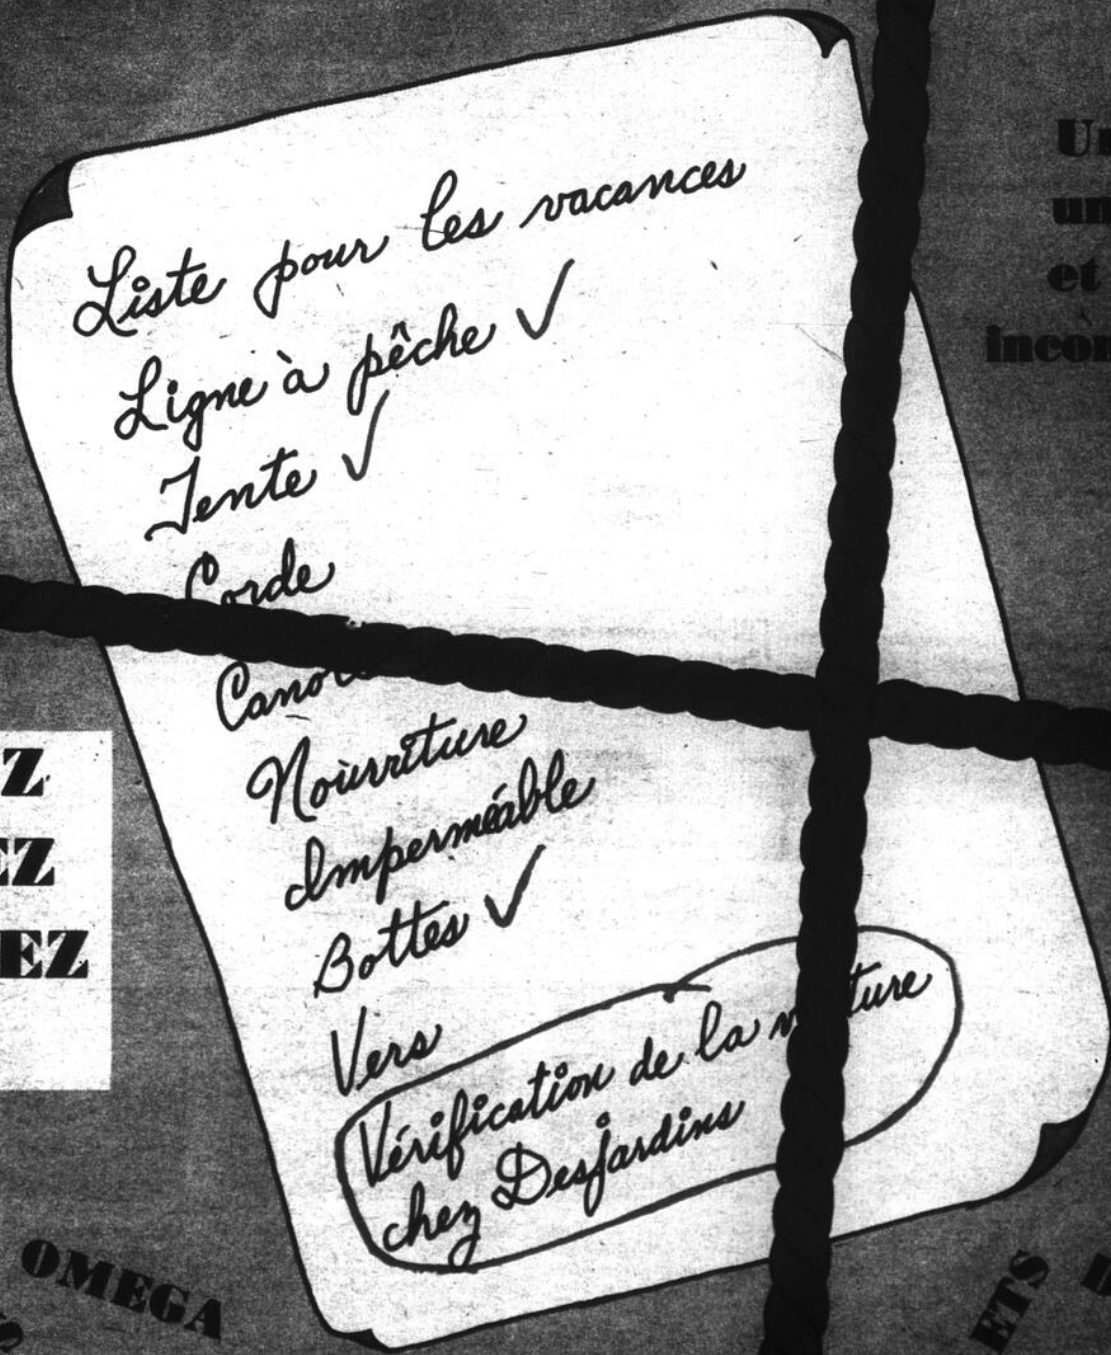 Liste pour les vacances
Ligne à pêche ✓
Tente ✓
Corde
Nourriture
Imperméable
Bottes ✓
Vers
Vérification de la
chez Desjardins
OMEGA
ETS
et